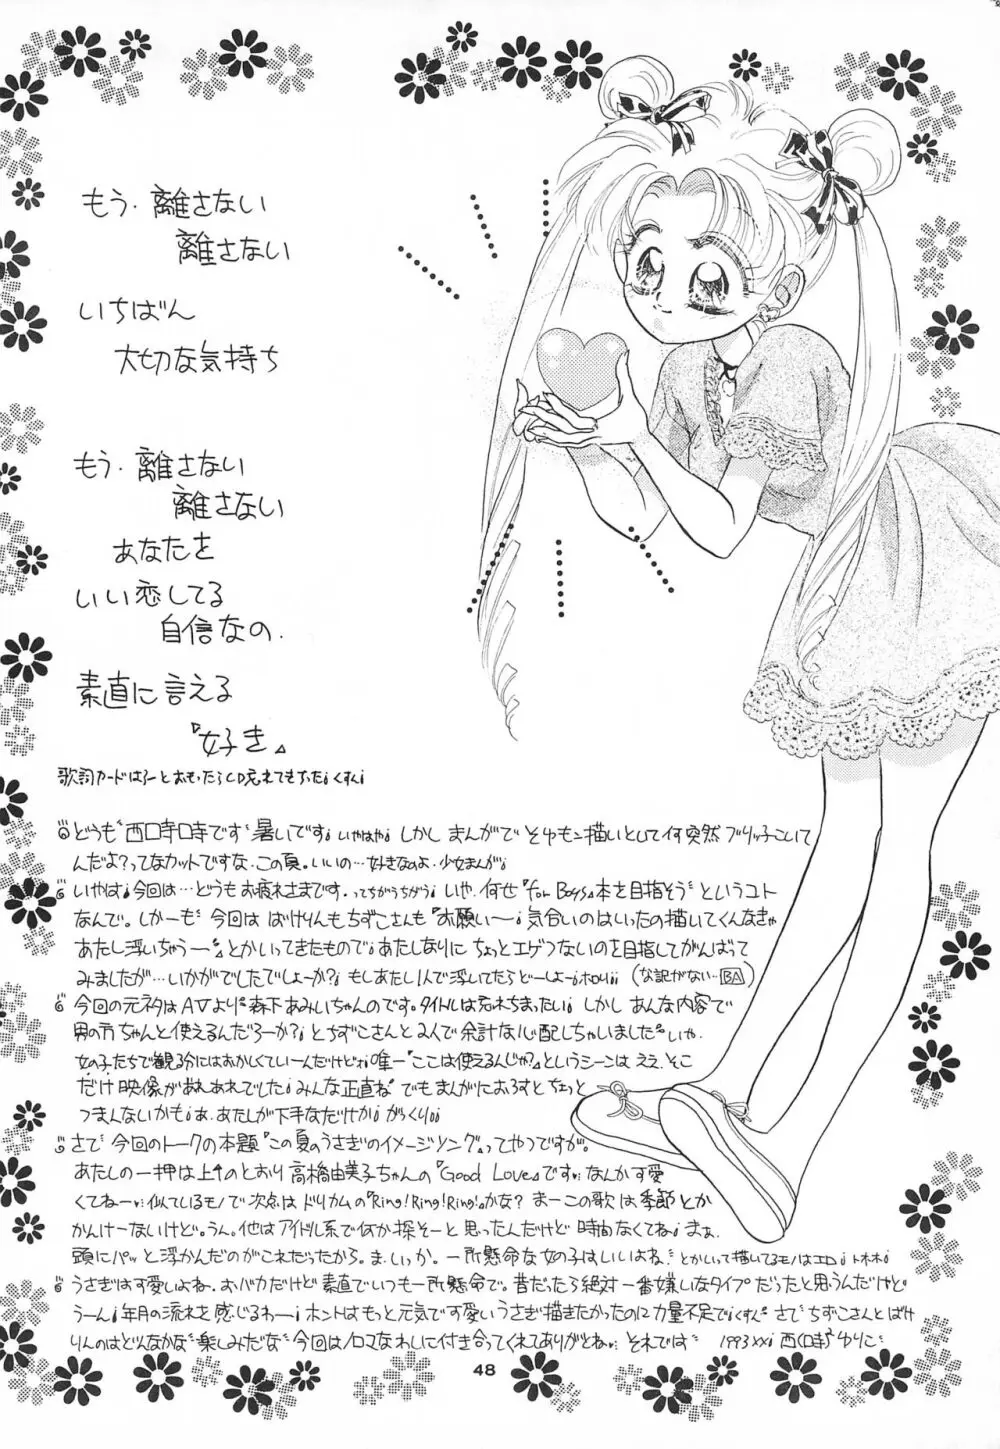 もう・離さない
離さない
いちばん
大切な気持ち
もう・離さない
離さない
あなたを
いい恋してる
自信なの.
素直に言える
『好き』
歌詞カードはろーとおもったらCD忘れてきちった！くすん！
どうも〝西口寺口寺です〟暑いです！いやはや！しかし まんがで そゆモン描いとして何突然 ブリッ子こいて
んだよ？ってなカットですな. この頁. いいの…好きなのよ. 少女まんが！
いやは！今回は…どうもお疲れさまです. ってちがうちがう！いや. 何せ『for Boys』本を目指そう〟というコト
なんで。しかーも〟今回は ばけりんもちずこさんも『お願い〜！気合いのはいったの描いてくんなきゃ
あたし浮いちゃうー〟』とかいってきたもので！あたしなりに ちょっとエゲつないのを目指してがんばって
みましたが…いかがでしたでしょーか？！もしあたし1人で浮いてたらどーしよー！ホロリ！！(な記がない…BA)
今回の元ネタはAVより〝森下あみいちゃんのです。タイトルは忘れちまったい！しかし あんな内容で
男の方ちゃんと使えるんだろーか？！とちずこさんと2人で余計な心配しちゃいました〟いや.
女の子たちで観る分にはおかしくていーんだけど！唯一『ここは使えるんじゃ？』というシーンは ええ. そこ
だけ 映像があれあれでした！みんな正直ね〟でもまんがにおろすと ちょっと
つまんないかも！あ. あたしが下手なだけか！がっくり！！
さて〟今回のトークの本題『この夏のうさぎのイメージソング』ってやつですが.
あたしの一押は上↑のとおり 高橋由美子ちゃんの『Good Love』です. なんか可愛
くてねー 似ているモノで次点は ドリカムの『Ring! Ring! Ring!』かな？ まーこの歌は季節とか
かんけーないけど. うん. 他はアイドル系で何か探そーと思ったんだけど 時間なくてね！まぁ
頭にパッと浮かんだのがこれだったから. ま. いっか. 一所懸命な女の子はいいよね. とかいって描いてるモノはエロ！トホホ！
うさぎは可愛しよね. おバカだけど素直でいつも一所懸命で. 昔だったら絶対一番嫌いなタイプだったと思うんだけど
うーん！年月の流れを感じるわー！ホントはもっと元気で可愛いうさぎ描きたかったのに力量不足で！くすん〟さて〟ちずこさんとばけ
りんのはどんなかな〟楽しみだな〟今回はノロマなわしに付き合ってくれてありがとね それでは〟 1993xx！西口寺ゆりこ
48